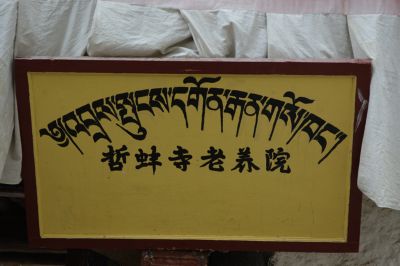 ༄༅འབྲས་སྤུངས་དགོན་རྒན་གསོ་ཁང་།
哲蚌寺老养院